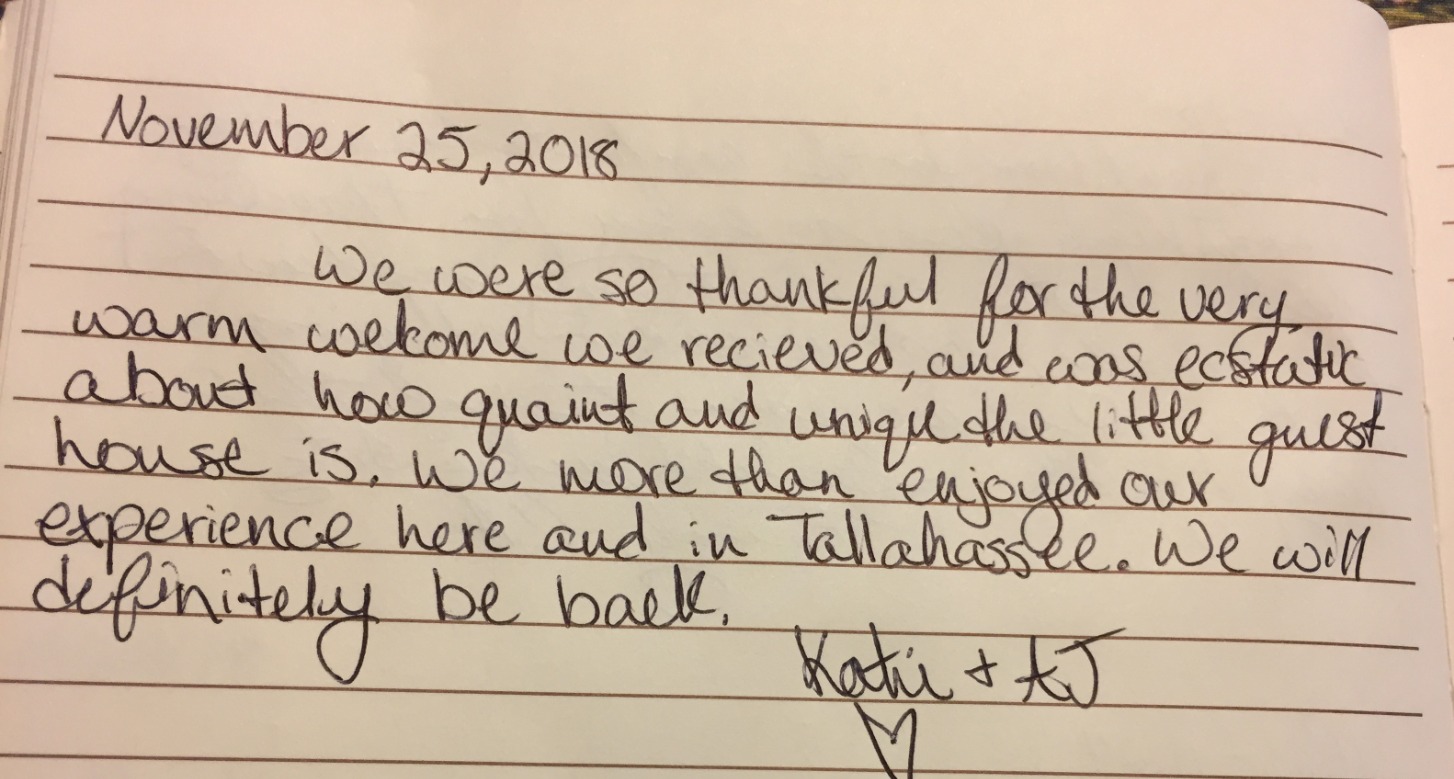 November 25, 2018
We were so thankful for the very
warm welcome we recieved, and was ecstatic
about how quaint and unique the little guest
house is. We more than enjoyed our
experience here and in Tallahassee. We will
definitely be back.
Katie +